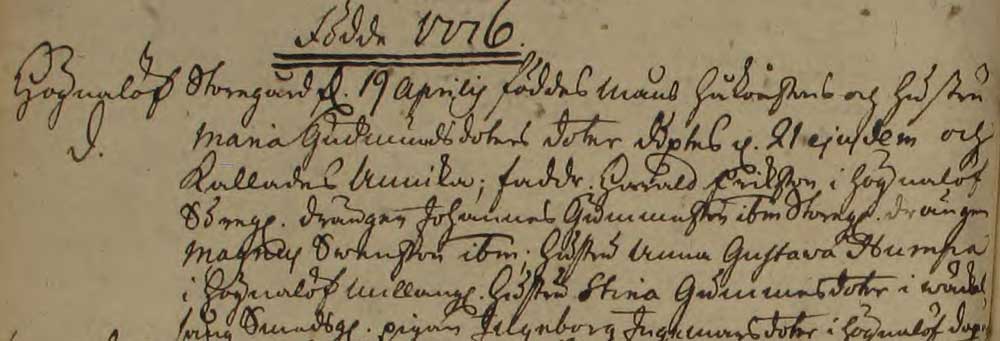 Födde 1776.
Hognalöf Storegård d. 19 Aprilis föddes Måns Håkonssons och Hustru
d. Maria Gudmundsdoters doter döptes d. 21 ejusdem och
Kallades Annika; faddr. Harald Eriksson i Hognalöf
Storeg. drängen Johannes Gummesson ibm Storeg. drängen
Magnus Swensson ibm; Hustru Anna Gustava Humpa
i Hognalöf millang. Hustru Stina Gummesdoter i
Smedsg. pigan Ingeborg Ingemarsdoter i Hognalöf